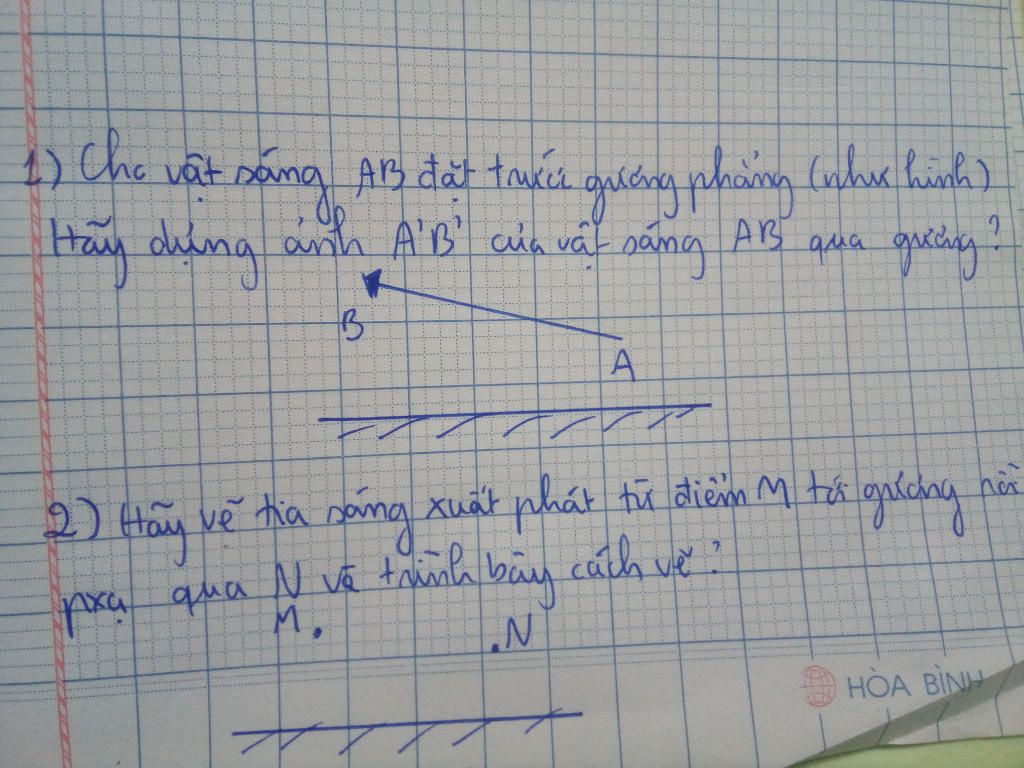 1) Cho vật sáng AB đặt trước gương phẳng (như hình)
Hãy dựng ảnh A'B' của vật sáng AB qua gương?
B
A
2) Hãy vẽ tia sáng xuất phát từ điểm M tới gương rồi
pxạ qua N và trình bày cách vẽ?
M. .N
HÒA BÌNH